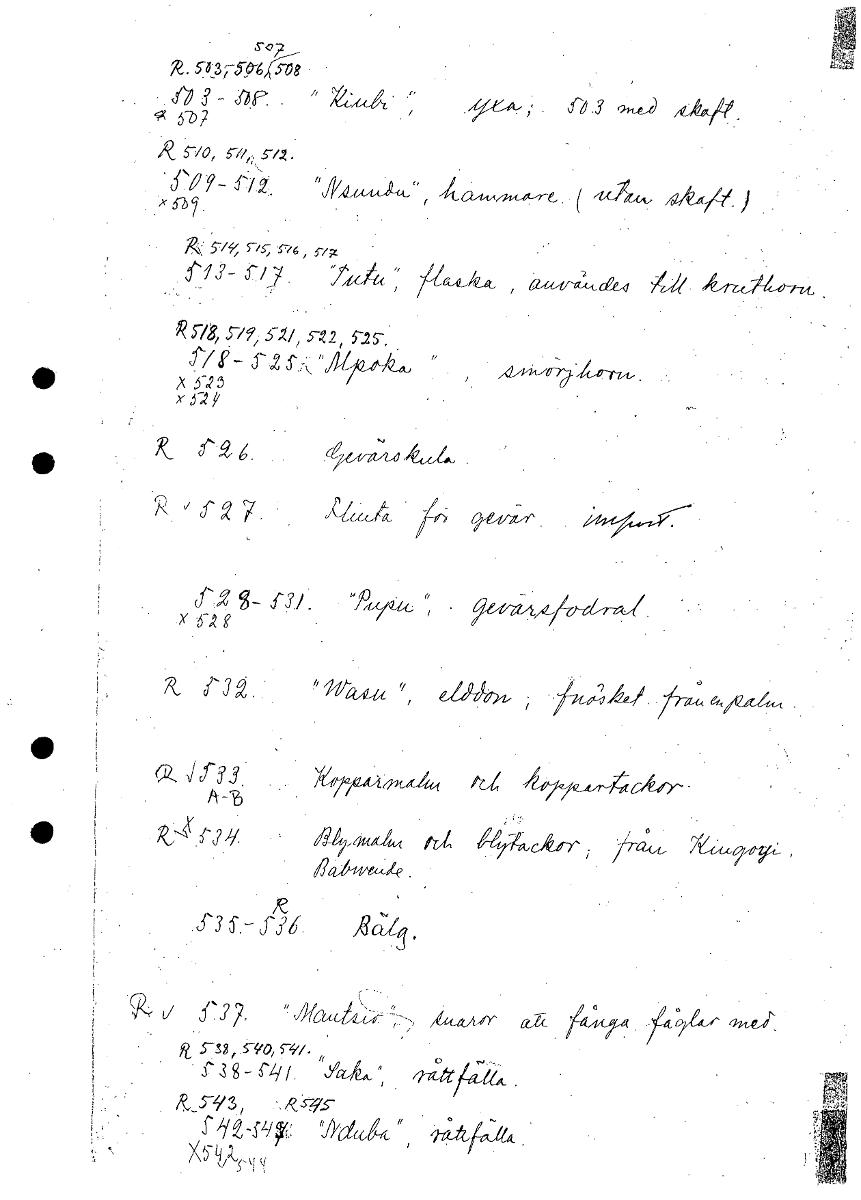 507
R. 503, 506, 508
503-508. "Kiubi", yxa; 503 med skaft.
x 507
R 510, 511, 512.
509-512. "Nsundu", hammare (utan skaft.)
x 509
R 514, 515, 516, 517
513-517. "Tutu", flaska, användes till kruthorn.
R 518, 519, 521, 522, 525.
518-525. "Mpoka", smörjhorn.
x 523
x 524
R 526. Gevärskula.
R v 527. Flinta för gevär. import.
528-531. "Pupu", gevärsfodral
x 528
R 532. "Wasu", elddon; fnösket från en palm
R √ 533 Kopparmalm och koppartackor.
A-B
R x 534. Blymalm och blytackor, från Kingoyi.
Babwende.
R
535.-536. Bälg.
R v 537. "Mantsio", snaror att fånga fåglar med.
R 538, 540, 541.
538-541. "Saka", råttfälla.
R 543, R 545
542-545 "Nduba", råttfälla.
X 542, 544